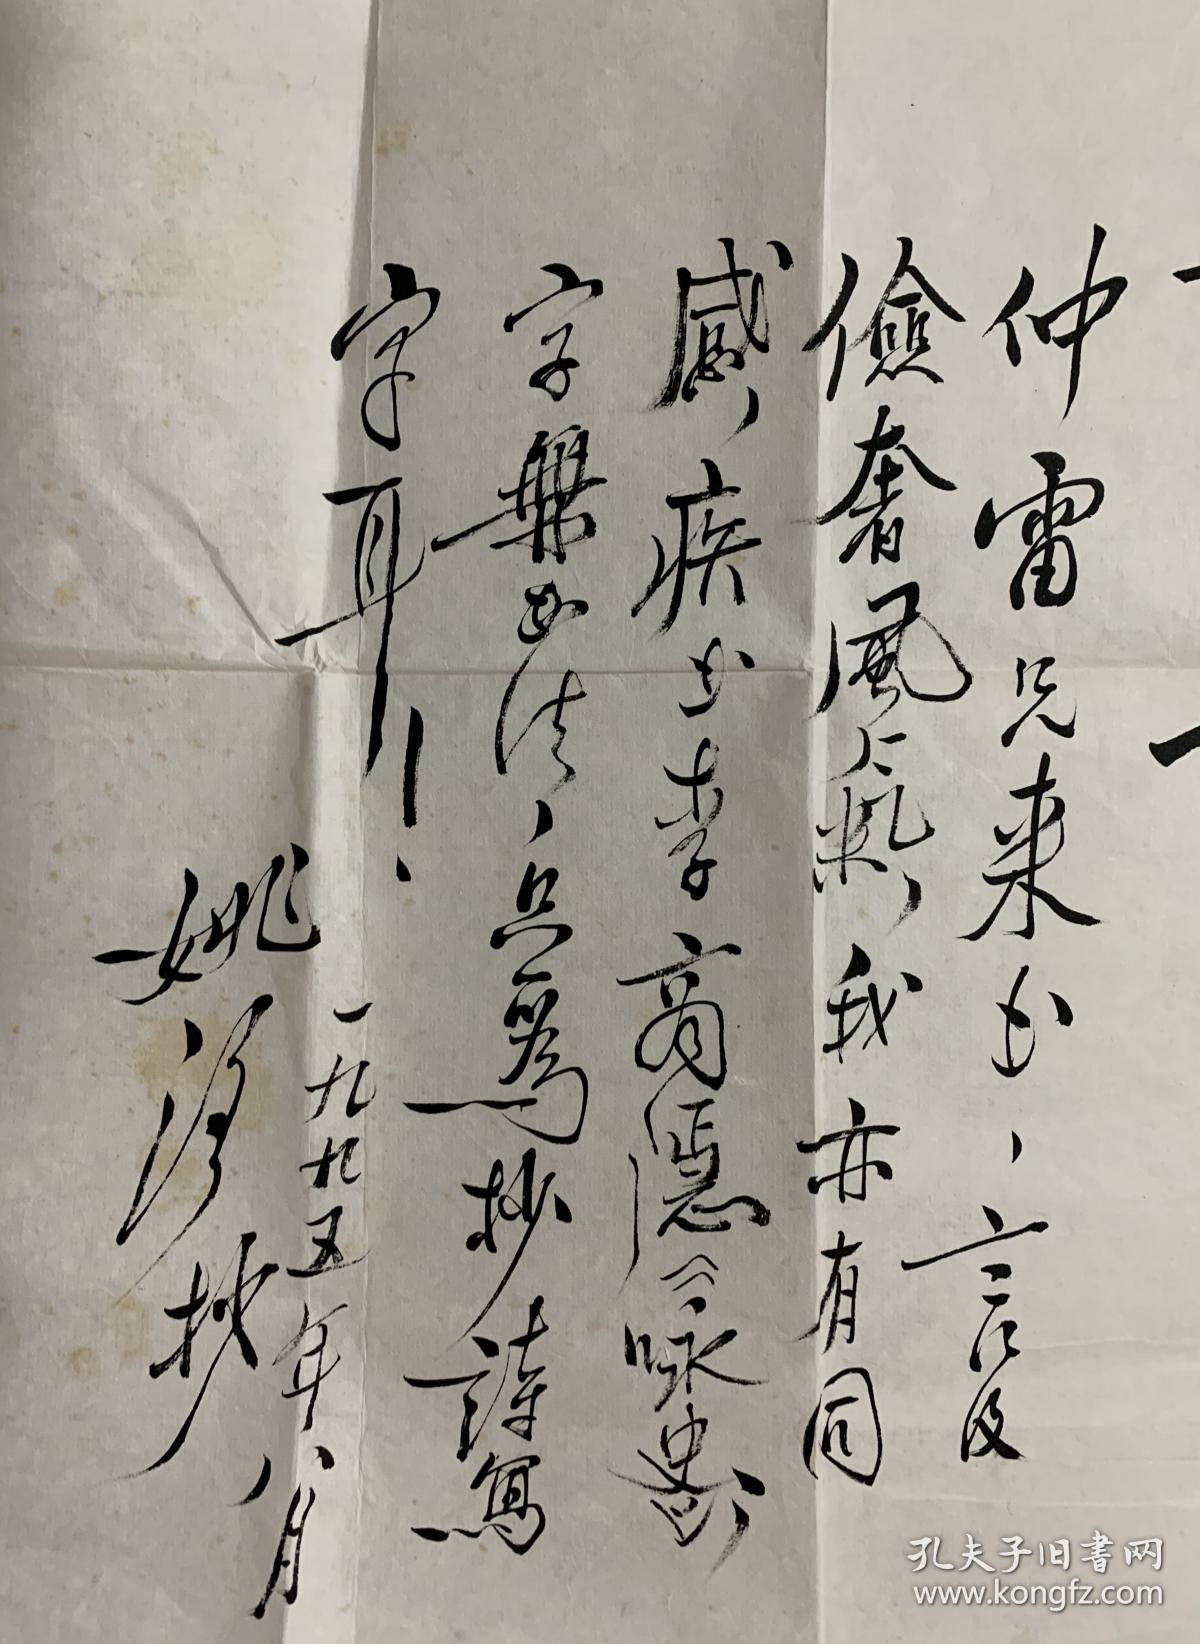 仲雷兄来书、言及
儉奢風氣，我亦有同
感，疾书李商隱《咏史》，
字無书法，只爲抄詩寫
字耳！
一九九五年八月
姚 抄
孔夫子旧書网
www.kongfz.com